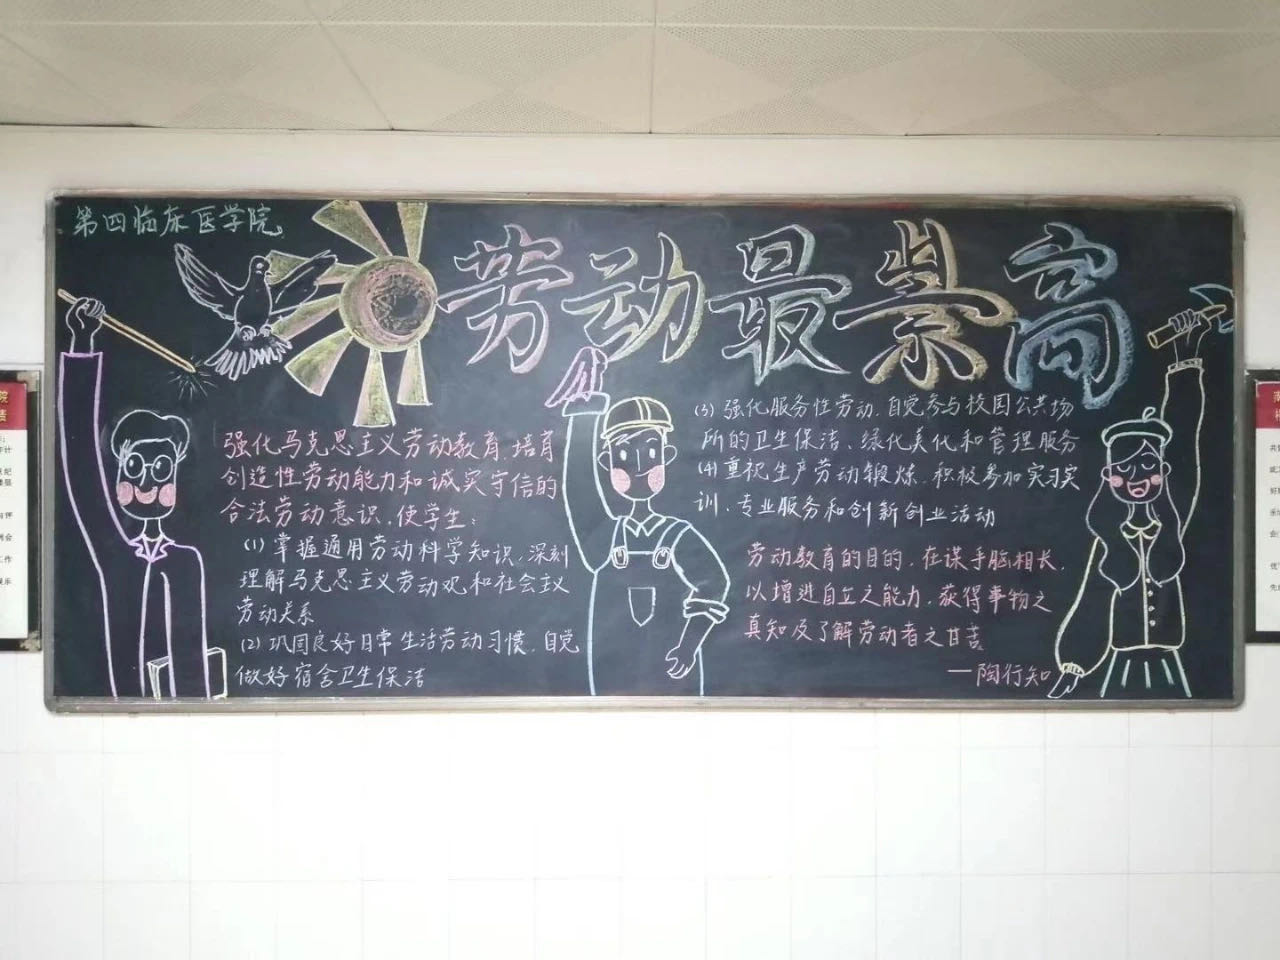 第四临床医学院
劳动最崇高
强化马克思主义劳动教育,培育
创造性劳动能力和诚实守信的
合法劳动意识,使学生:
(1) 掌握通用劳动科学知识,深刻
理解马克思主义劳动观和社会主义
劳动关系
(2) 巩固良好日常生活劳动习惯,自觉
做好宿舍卫生保洁
(3) 强化服务性劳动,自觉参与校园公共场
所的卫生保洁、绿化美化和管理服务
(4) 重视生产劳动锻炼,积极参加实习实
训、专业服务和创新创业活动
劳动教育的目的,在谋手脑相长,
以增进自立之能力,获得事物之
真知及了解劳动者之甘苦。
—陶行知